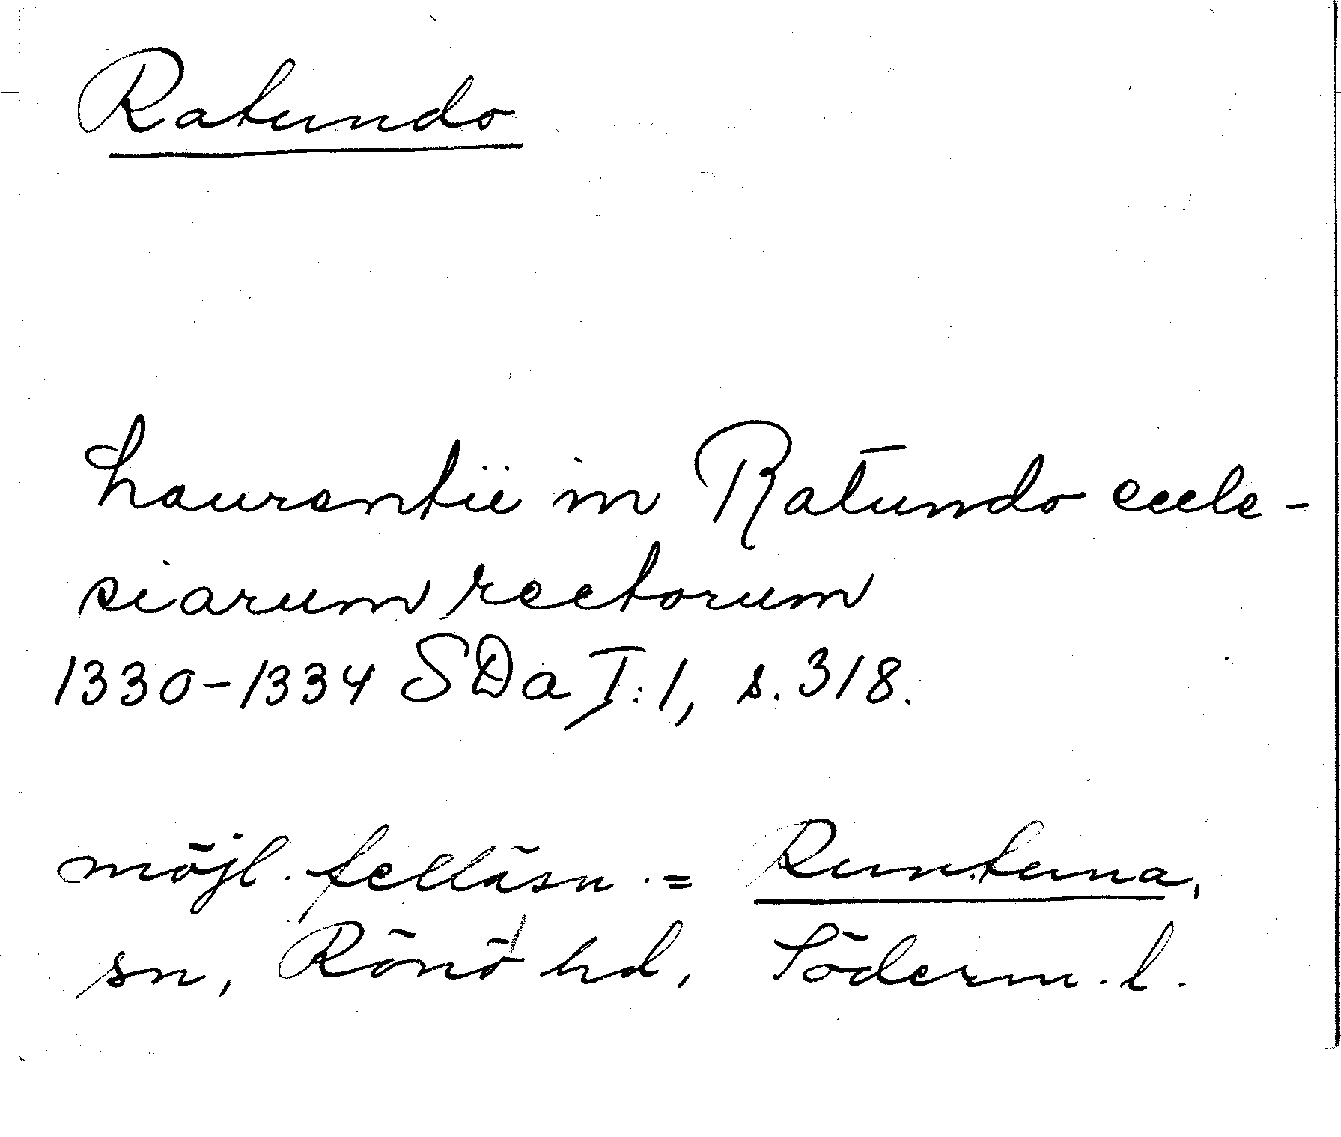 Ratundo
Laurentii in Ratundo eccle-
siarum rectorum
1330-1334 SDa I:1, s. 318.
möjl. felläsn. = Runtuna,
sn, Rönö hd, Söderm. l.